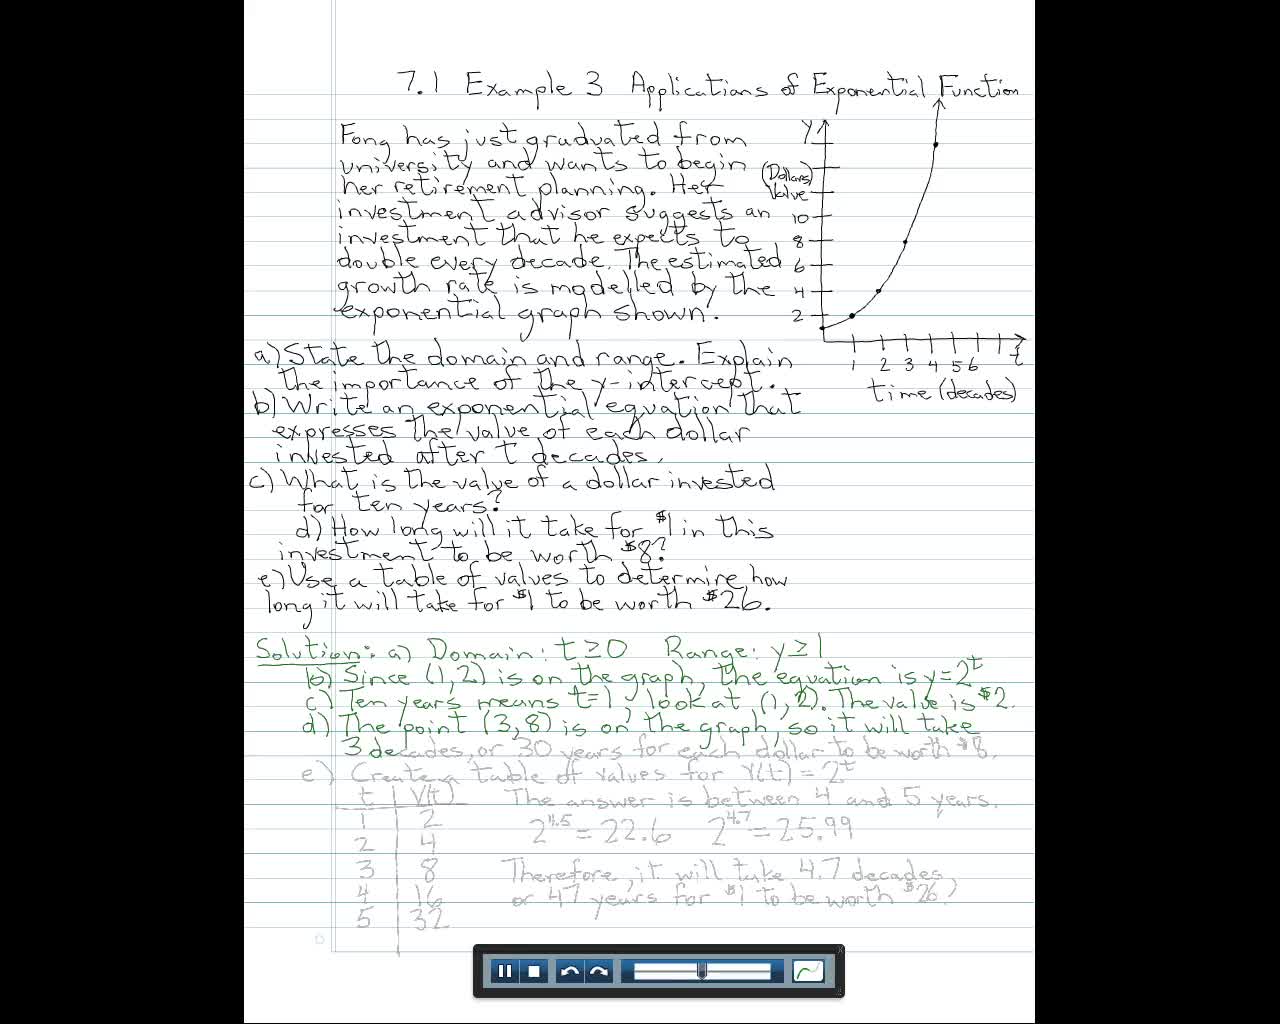 7.1 Example 3 Applications of Exponential Function
Fong has just graduated from
university and wants to begin
her retirement planning. Her
investment advisor suggests an
investment that he expects to
double every decade. The estimated
growth rate is modelled by the
exponential graph shown.
y
(Dollars)
Value
10
8
6
4
2
1 2 3 4 5 6 t
time (decades)
a) State the domain and range. Explain
the importance of the y-intercept.
b) Write an exponential equation that
expresses the value of each dollar
invested after t decades.
c) What is the value of a dollar invested
for ten years?
d) How long will it take for $1 in this
investment to be worth $8?
e) Use a table of values to determine how
long it will take for $1 to be worth $26.
Solution: a) Domain: t ≥ 0 Range: y ≥ 1
b) Since (1,2) is on the graph, the equation is y = 2^t
c) Ten years means t = 1, look at (1,2). The value is $2.
d) The point (3,8) is on the graph, so it will take
3 decades, or 30 years for each dollar to be worth $8.
e) Create a table of values for V(t) = 2^t
t V(t) The answer is between 4 and 5 years.
1 2 2^4.5 = 22.6 2^4.7 = 25.99
2 4
3 8 Therefore, it will take 4.7 decades,
4 16 or 47 years for $1 to be worth $26?
5 32